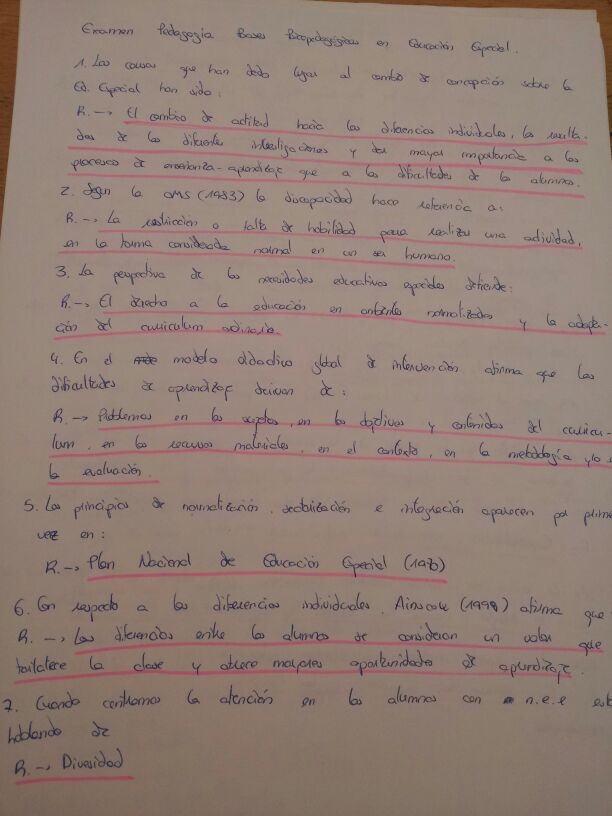 Examen Pedagogía Bases Psicopedagógicas en Educación Especial.
1. Las causas que han dado lugar al cambio de concepción sobre la
Ed. Especial han sido:
R.→ El cambio de actitud hacia las diferencias individuales, los resulta-
dos de las diferentes investigaciones y dar mayor importancia a los
procesos de enseñanza-aprendizaje que a las dificultades de los alumnos.
2. Según la OMS (1983) la discapacidad hace referencia a:
R.→ La restricción o falta de habilidad para realizar una actividad,
en la forma considerada normal en un ser humano.
3. La perspectiva de las necesidades educativas especiales defiende:
R.→ El derecho a la educación en ambientes normalizados y la adapta-
ción del curriculum ordinario.
4. En el modelo didáctico global de intervención afirma que las
dificultades de aprendizaje derivan de:
R.→ Problemas en los sujetos, en los objetivos y contenidos del curricu-
lum, en los recursos materiales, en el contexto, en la metodología y/o en
la evaluación.
5. Los principios de normalización, sectorización e integración aparecen por prime
vez en:
R.→ Plan Nacional de Educación Especial (1978)
6. Con respecto a las diferencias individuales, Ainscow (1998) afirma que
R.→ Las diferencias entre los alumnos se consideran un valor que
fortalece la clase y ofrece mayores oportunidades de aprendizaje.
7. Cuando centramos la atención en los alumnos con n.e.e est
hablando de
R.→ Diversidad